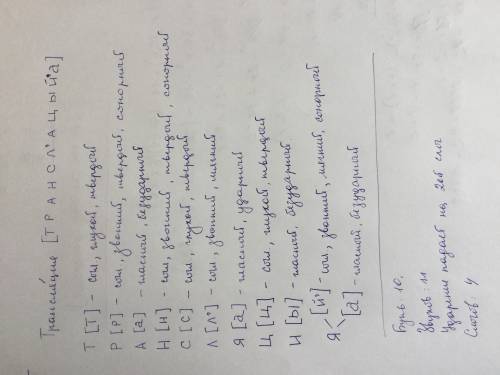 Трансляция [ТРАНСЛ'АЦЫЙ'А]
Т [Т] – согл, глухой, твердый
Р [Р] – согл, звонкий, твердый, сонорный
А [а] – гласный, безударный
Н [Н] – согл, звонкий, твердый, сонорный
С [С] – согл, глухой, твердый
Л [Л'] – согл, звонкий, мягкий
Я [а] – гласный, ударный
Ц [Ц] – согл, глухой, твердый
И [Ы] – гласный, безударный
Я [й'] – согл, звонкий, мягкий, сонорный
[а] – гласный, безударный
Букв 10.
Звуков: 11
Ударение падает на 2ой слог
Слогов 4